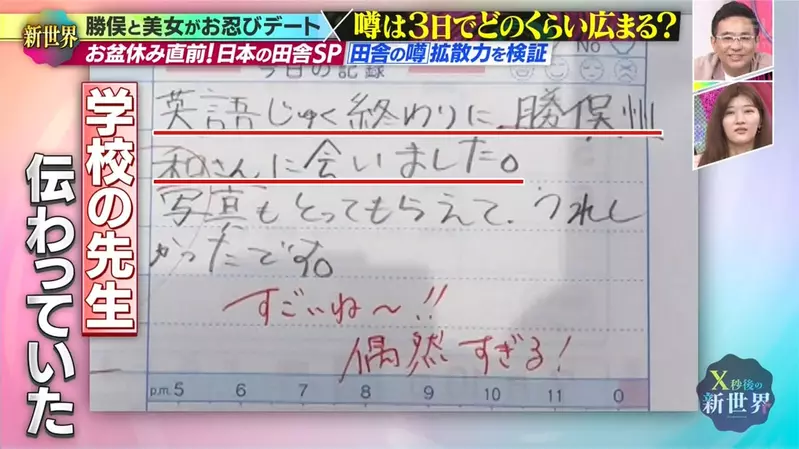 新世界
勝俣と美女がお忍びデート
噂は3日でどのくらい広まる?
お盆休み直前!日本の田舎SP
田舎の噂 拡散力を検証
No
今日の記録
英語じゅく終わりに、勝俣州
和さんに会いました。
写真もとってもらえて、うれし
かったです。
すごいね〜!!
偶然すぎる!
p.m. 5 6 7 8 9 10 11 0
学校の先生
伝わっていた
X秒後の
新世界